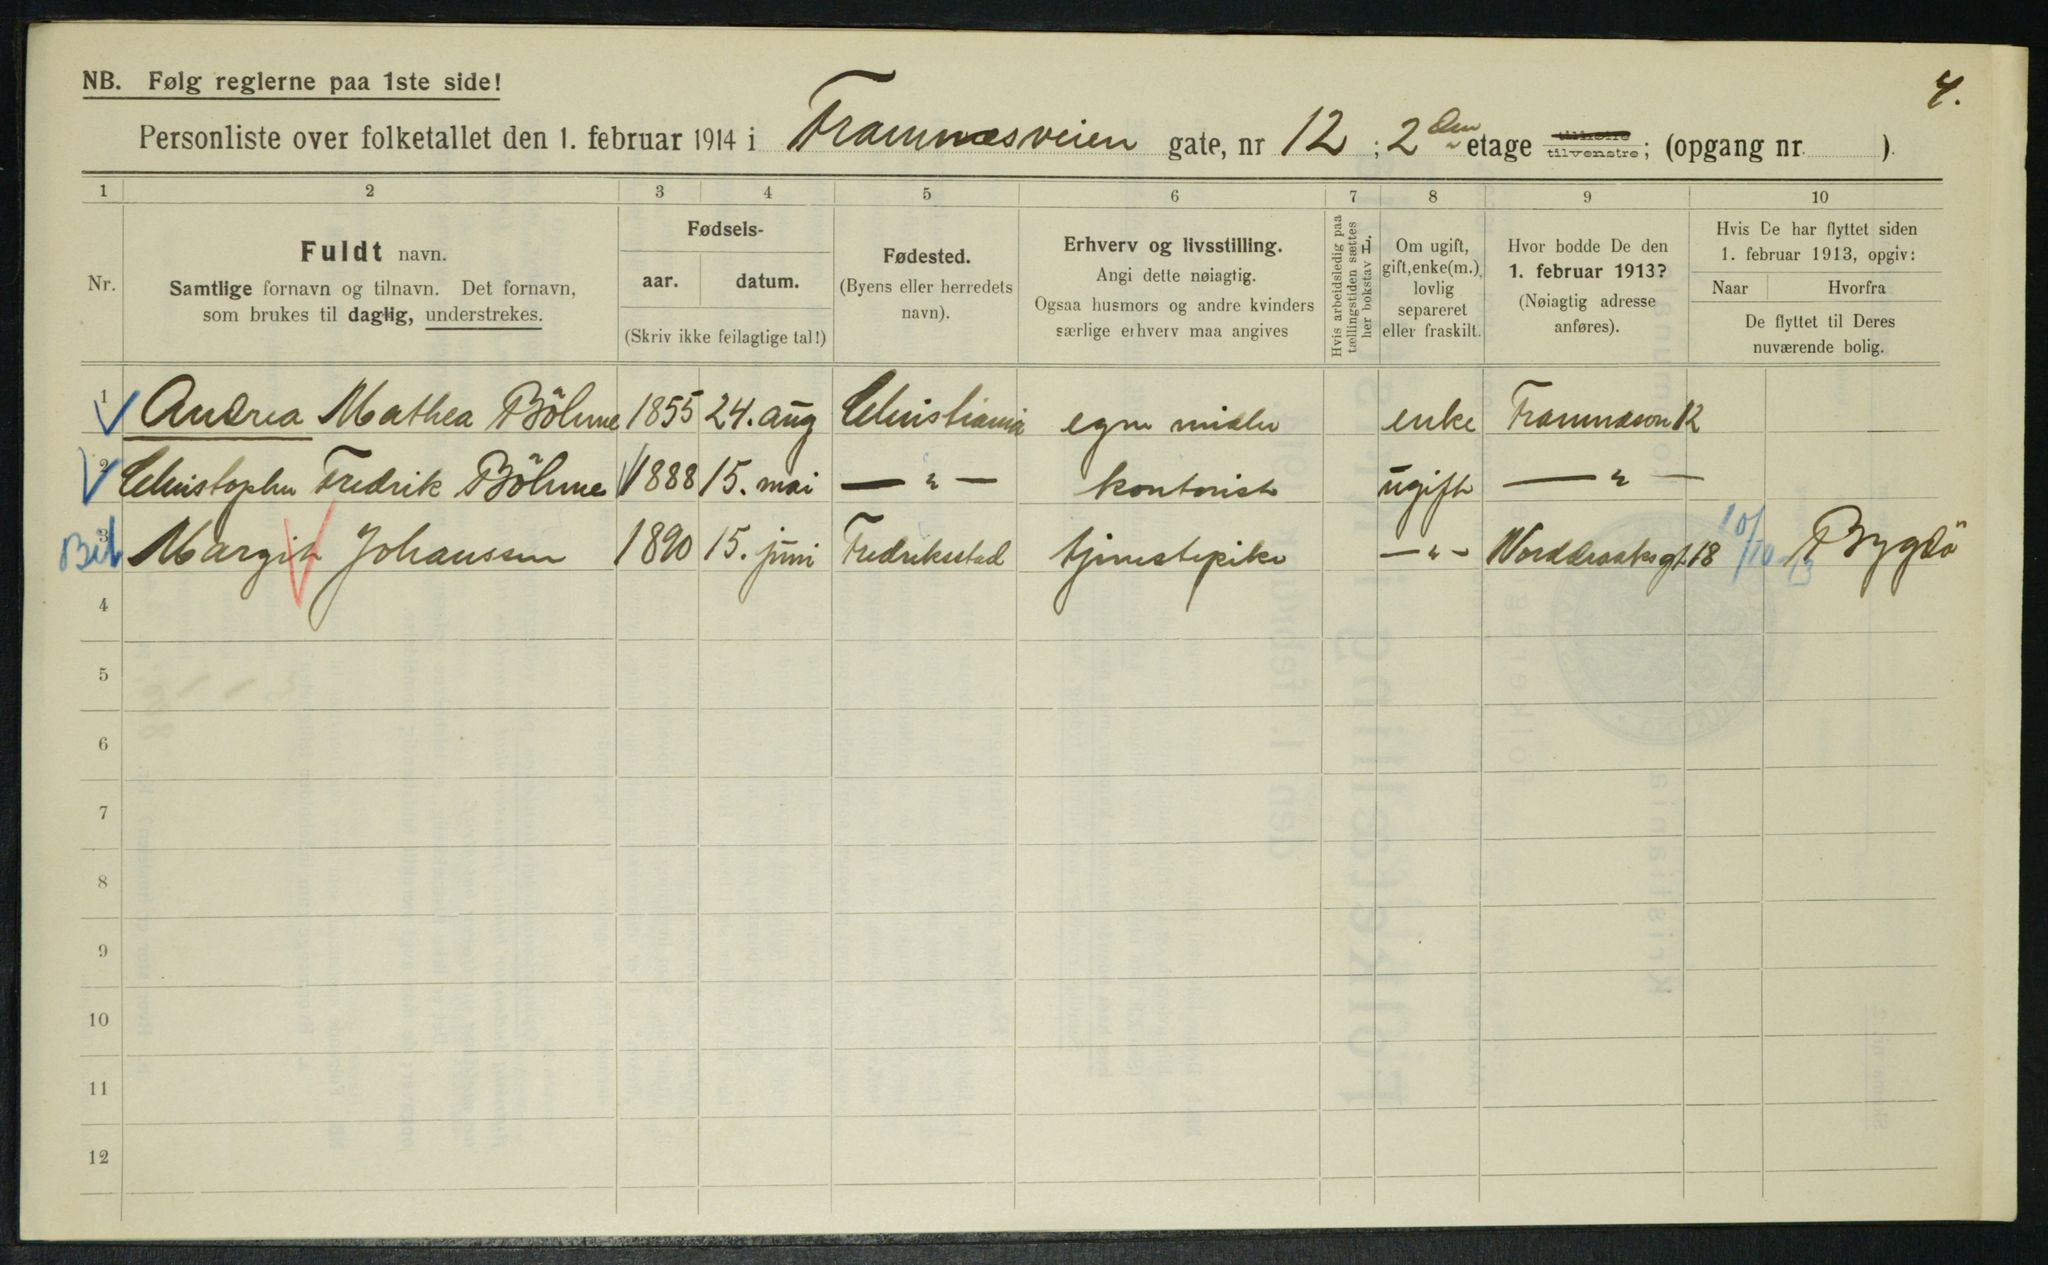 NB. Følg reglerne paa 1ste side!
4.
Personliste over folketallet den 1. februar 1914 i Framnæsveien gate, nr 12 ; 2 den etage tilhøire tilvenstre; (opgang nr. ).
1 2 3 4 5 6 7 8 9 10
Nr.
Fuldt navn.
Samtlige fornavn og tilnavn. Det fornavn,
som brukes til daglig, understrekes.
Fødsels-
aar. datum.
(Skriv ikke feilagtige tal!)
Fødested.
(Byens eller herredets
navn).
Erhverv og livsstilling.
Angi dette nøiagtig.
Ogsaa husmors og andre kvinders
særlige erhverv maa angives
Hvis arbeidsledig paa
tællingstiden sættes
her bokstav L.
Om ugift,
gift, enke(m.),
lovlig
separeret
eller fraskilt.
Hvor bodde De den
1. februar 1913?
(Nøiagtig adresse
anføres).
Hvis De har flyttet siden
1. februar 1913, opgiv:
Naar Hvorfra
De flyttet til Deres
nuværende bolig.
1 Andrea Mathea Böhme 1855 24. aug Christiania egne midler enke Framnæsvn 12
2 Christopher Fredrik Böhme 1888 15. mai — " — kontorist ugift — " —
Bil 3 Margit Johanssen 1890 15. juni Fredriksstad tjenestepike — " — Norddraaksgt. 18 10/10 13 Bygdö
4
5
6
7
8
9
10
11
12